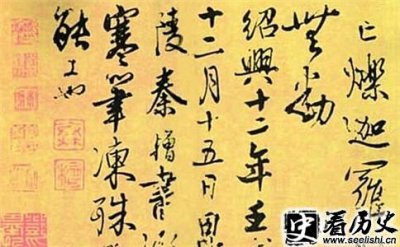 亡爍迦羅
無動
紹興十二年壬
十二月十五日
陵秦檜書
寒筆凍殊
能工也
史看历史
www.seelishi.cn